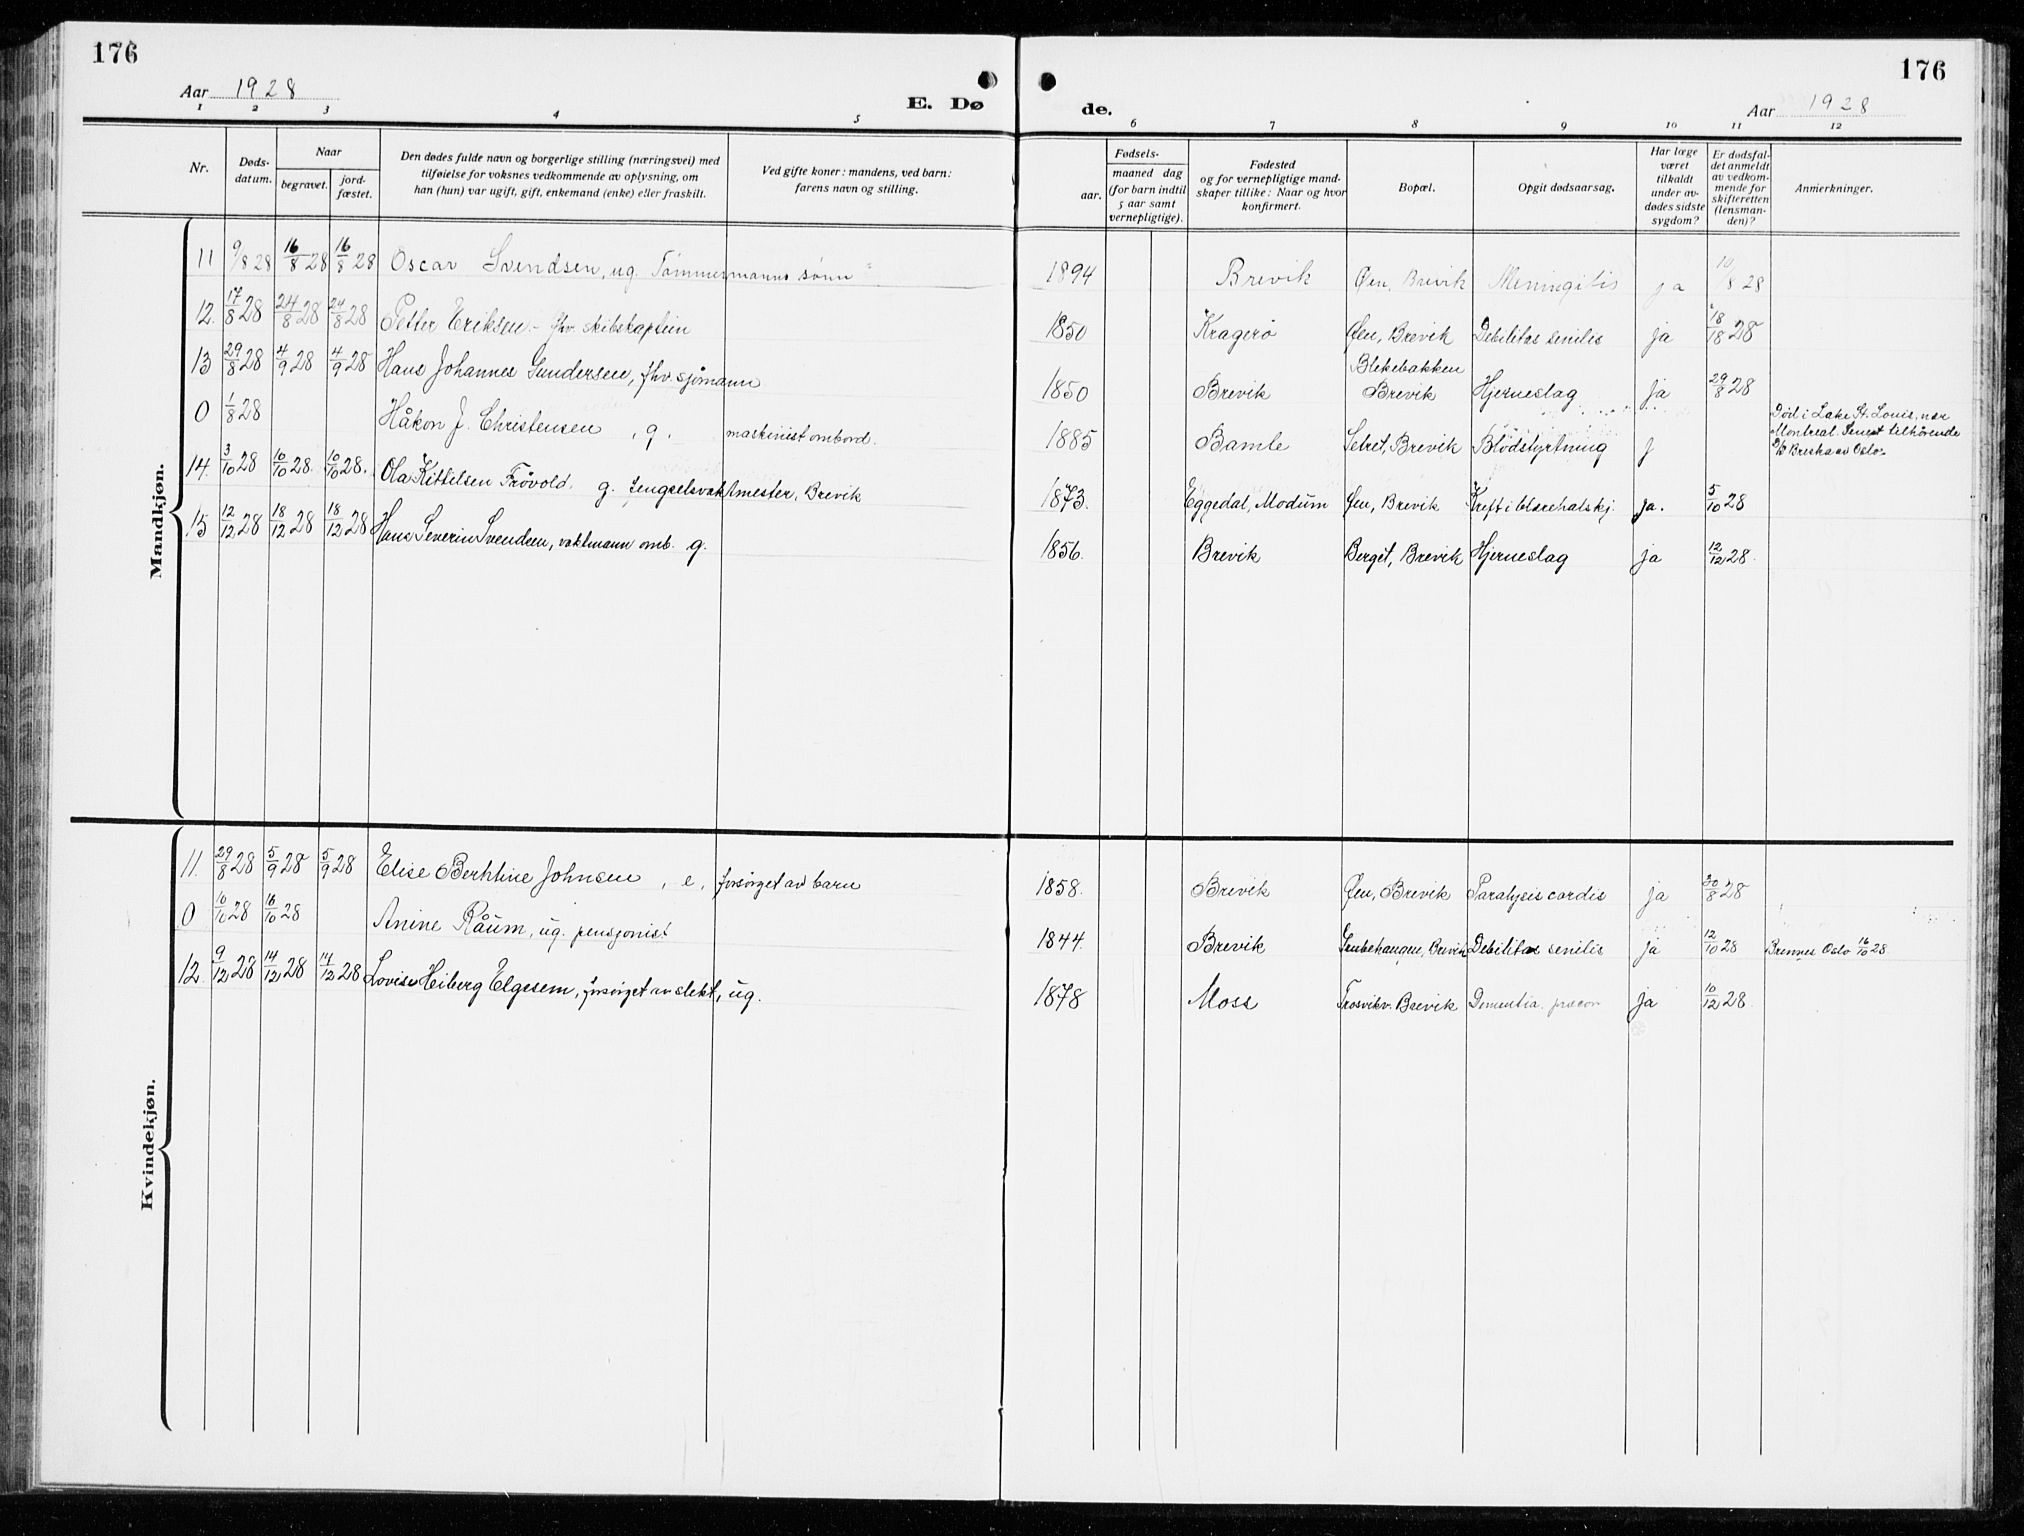 176
176
Aar 1928
E. Dø
de.
Aar 1928
1 2 3 4 5 6 7 8 9 10 11 12
Nr.
Døds-
datum.
Naar
begravet.
jord-
fæstet.
Den dødes fulde navn og borgerlige stilling (næringsvei) med
tilføielse for voksnes vedkommende av oplysning, om
han (hun) var ugift, gift, enkemand (enke) eller fraskilt.
Ved gifte koner: mandens, ved barn:
farens navn og stilling.
Fødsels-
aar.
maaned dag
(for barn indtil
5 aar samt
vernepligtige).
Fødested
og for vernepligtige mand-
skaper tillike: Naar og hvor
konfirmert.
Bopæl.
Opgit dødsaarsag.
Har læge
været
tilkaldt
under av-
dødes sidste
sygdom?
Er dødsfal-
det anmeldt
av vedkom-
mende for
skifteretten
(lensman-
den)?
Anmerkninger.
Mandkjøn.
11 9/8 28 16/8 28 16/8 28 Oscar Svendsen, ug. Tømmermanns sønn 1894 Brevik Øen, Brevik Meningitis ja 10/8 28
12. 17/8 28 24/8 28 24/8 28 Petter Eriksen - fhv. skibskaptein 1850 Kragerö Øen, Brevik Debilitas senilis ja 18/18 28
13 29/8 28 4/9 28 4/9 28 Hans Johannes Gundersen, fhv. sjømann 1850 Brevik Blekebakken Brevik Hjerneslag ja 29/8 28
0 1/8 28 Håkon J. Christensen, g. maskinist ombord. 1885 Bamle Setret, Brevik Blödstyrtning j Död i Lake St. Louis, nær
Montreal. Senest tilhörende
D/S Breska av Oslo.
14. 3/10 28 10/10 28. 10/10 28. Ola Kittilsen Frøvold. g. fengselsvaktmester, Brevik 1873. Eggedal, Modum Øen, Brevik Kreft i blærehalskj. ja. 5/10 28
15 12/12 28 18/12 28 18/12 28 Hans Severin Svendsen, vaktmann omb. g. 1856. Brevik Berget, Brevik Hjerneslag ja 12/12 28.
Kvindekjøn.
11. 29/8 28 5/9 28 5/9 28 Elise Berthine Johnsen, e, forsörget av barn 1858. Brevik Øen, Brevik Paralysis cordis ja 30/8 28
0 10/10 28 16/10 28 Anine Råum, ug. pensjonist 1844. Brevik Grubehaugen, Brevik Debilitas senilis ja 12/10 28 Brennes Oslo 16/10 28.
12. 9/12 28 14/12 28 14/12 28 Lovise Heiberg Elgesem, forsörget av slekt, ug. 1878 Moss Trosvikv. Brevik Dementia præcox ja 10/12 28.